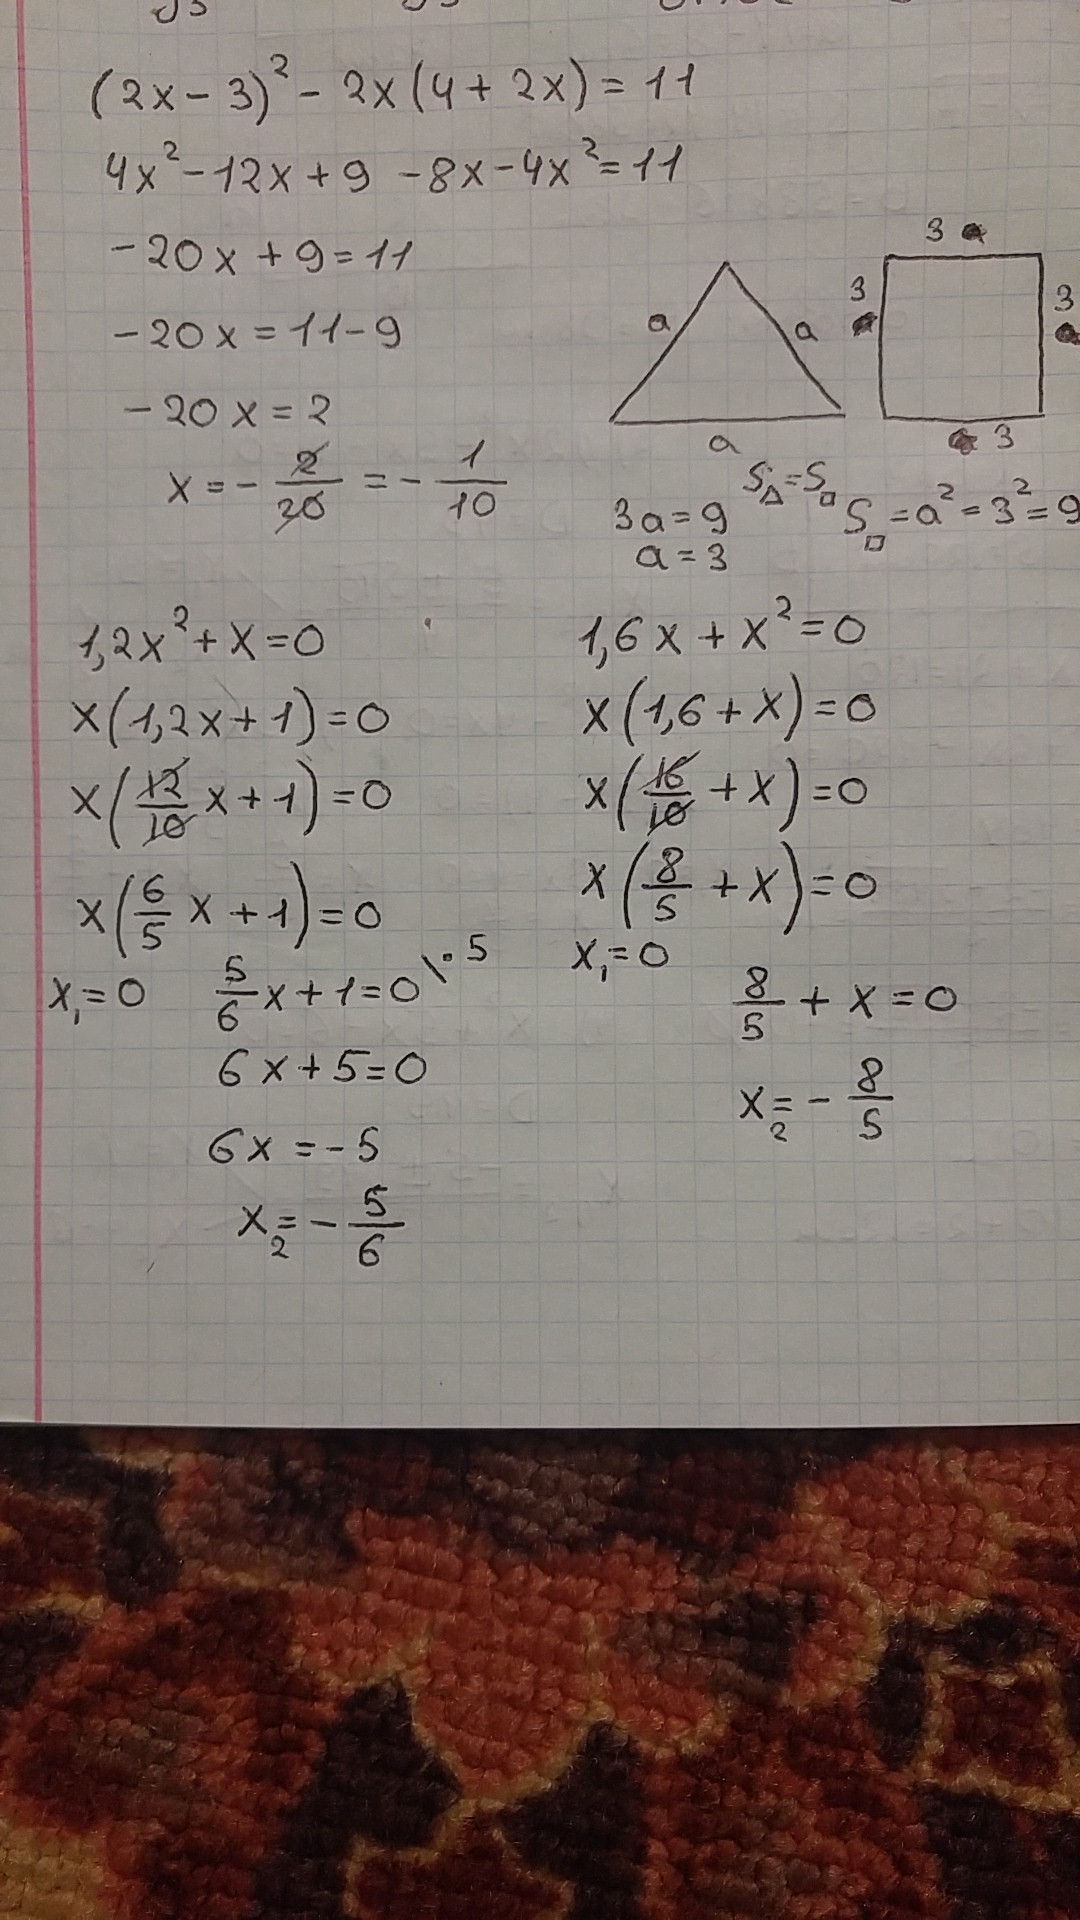 (2x-3)² - 2x(4+2x) = 11
4x² - 12x + 9 - 8x - 4x² = 11
-20x + 9 = 11
-20x = 11 - 9
-20x = 2
x = - 2/20 = - 1/10
3
3
3
3
a
a
a
S△ = S□
3a = 9
a = 3
S□ = a² = 3² = 9
1,2x² + x = 0
x(1,2x + 1) = 0
x(12/10 x + 1) = 0
x(6/5 x + 1) = 0
x₁ = 0
5/6 x + 1 = 0 \·5
6x + 5 = 0
6x = -5
x₂ = - 5/6
1,6x + x² = 0
x(1,6 + x) = 0
x(16/10 + x) = 0
x(8/5 + x) = 0
x₁ = 0
8/5 + x = 0
x₂ = - 8/5